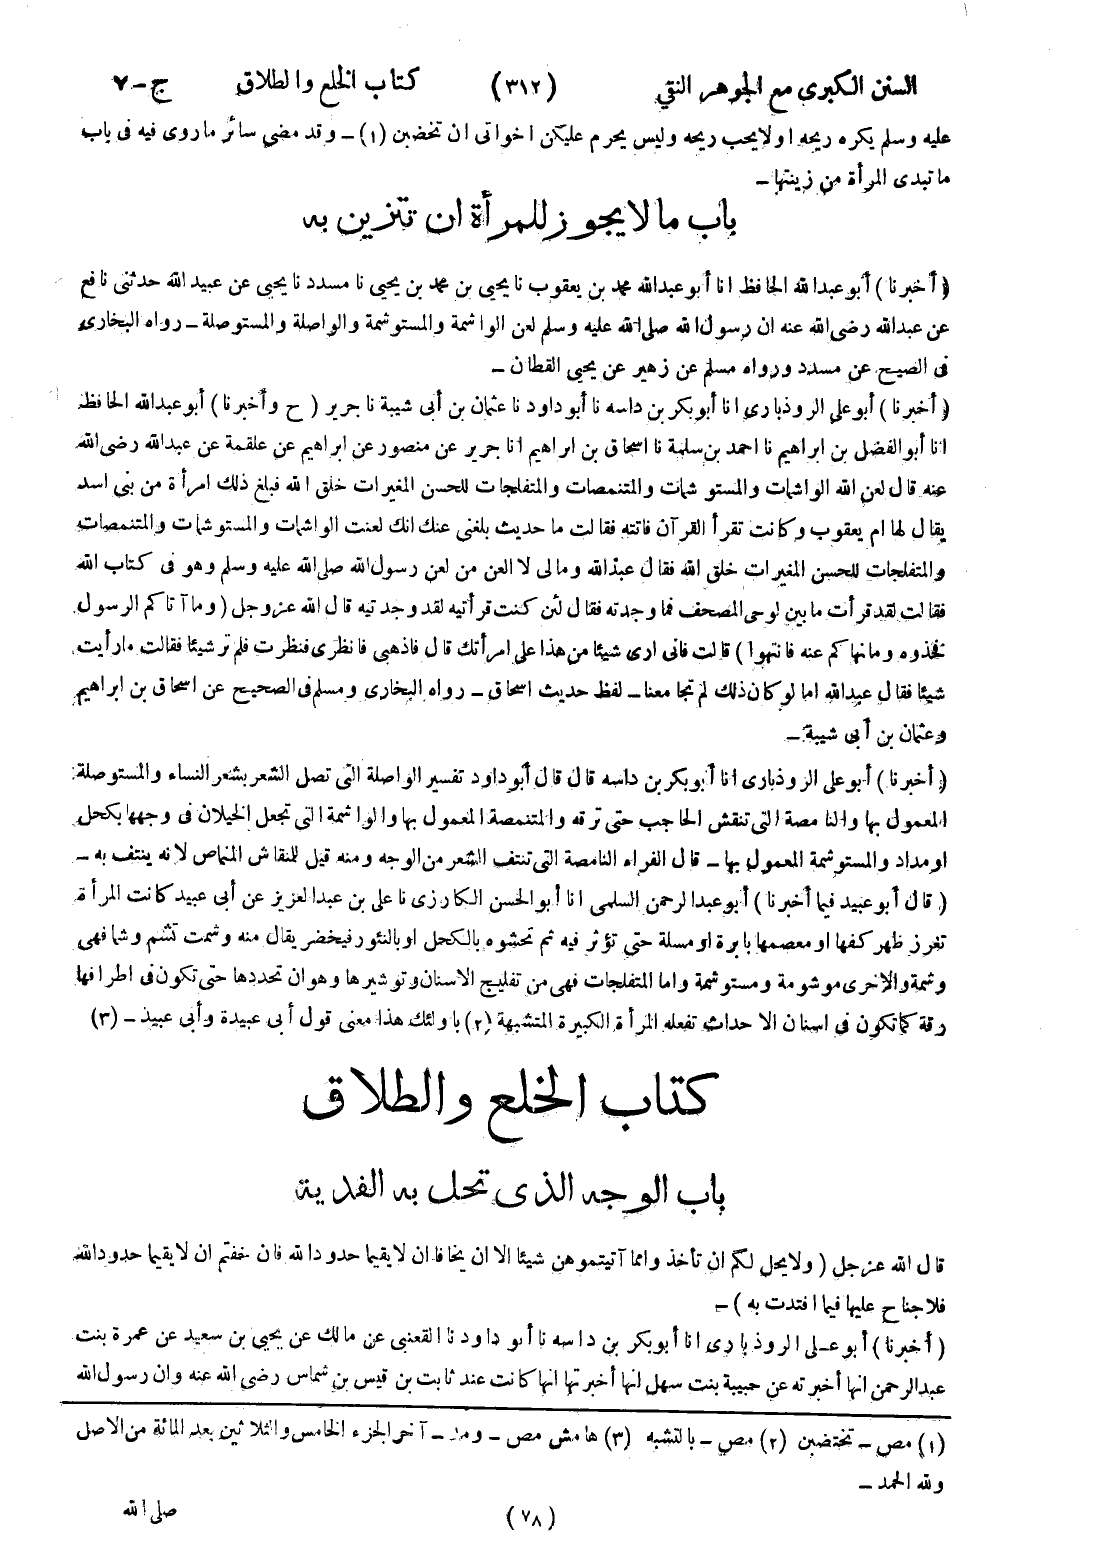 السنن الكبرى مع الجوهر النقي (٣١٢) كتاب الخلع والطلاق ج-٧
عليه وسلم يكره ريحه اولايحب ريحه وليس يحرم عليكن اخواتى ان تخضبن (١) - وقد مضى سائر ماروى فيه فى باب
ماتبدى المرأة من زينتها -
باب مالايجوز للمرأة ان تتزين به
(أخبرنا) أبوعبدالله الحافظ انا أبوعبدالله محمد بن يعقوب نا يحيى بن محمد بن يحيى نا مسدد نا يحيى عن عبيدالله حدثنى نافع
عن عبدالله رضى الله عنه ان رسول الله صلى الله عليه وسلم لعن الواشمة والمستوشمة والواصلة والمستوصلة - رواه البخارى
فى الصحيح عن مسدد ورواه مسلم عن زهير عن يحيى القطان -
(أخبرنا) أبوعلى الروذبارى انا أبوبكر بن داسه نا أبوداود نا عثمان بن أبى شيبة نا جرير (ح وأخبرنا) أبوعبدالله الحافظ
انا أبوالفضل بن ابراهيم نا احمد بن سلمة نا اسحاق بن ابراهيم انا جرير عن منصور عن ابراهيم عن علقمة عن عبدالله رضى الله
عنه قال لعن الله الواشمات والمستوشمات والمتنمصات والمتفلجات للحسن المغيرات خلق الله فبلغ ذلك امرأة من بنى اسد
يقال لها ام يعقوب وكانت تقرأ القرآن فاتته فقالت ما حديث بلغنى عنك انك لعنت الواشمات والمستوشمات والمتنمصات
والمتفلجات للحسن المغيرات خلق الله فقال عبدالله ومالى لا العن من لعن رسول الله صلى الله عليه وسلم وهو فى كتاب الله
فقالت لقد قرأت مابين لوحى المصحف فما وجدته فقال لئن كنت قرأتيه لقد وجدتيه قال الله عزوجل (وما آتاكم الرسول
فخذوه ومانهاكم عنه فانتهوا) قالت فانى ارى شيئا من هذا على امرأتك قال فاذهبى فانظرى فنظرت فلم تر شيئا فقالت مارأيت
شيئا فقال عبدالله اما لوكان ذلك لم تجامعنا - لفظ حديث اسحاق - رواه البخارى ومسلم فى الصحيح عن اسحاق بن ابراهيم
وعثمان بن أبى شيبة -
(أخبرنا) أبوعلى الروذبارى انا أبوبكر بن داسه قال قال أبوداود تفسير الواصلة التى تصل الشعر بشعر النساء والمستوصلة
المعمول بها والنامصة التى تنقش الحاجب حتى ترقه والمتنمصة المعمول بها والواشمة التى تجعل الخيلان فى وجهها بكحل
اومداد والمستوشمة المعمول بها - قال الفراء النامصة التى تنتف الشعر من الوجه ومنه قيل للنقاش المنماص لانه ينتف به -
(قال أبوعبيد فيما أخبرنا) أبوعبدالرحمن السلمى انا أبوالحسن الكارزى نا على بن عبدالعزيز عن أبى عبيد كانت المرأة
تغرز ظهر كفها او معصمها بابرة او مسلة حتى تؤثر فيه ثم تحشوه بالكحل اوبالنئور فيخضر يقال منه وشمت تشم وشما فهى
وشمة والاخرى موشومة ومستوشمة واما المتفلجات فهى من تفليج الاسنان وتوشيرها وهو ان تحددها حتى تكون فى اطرافها
رقة كما تكون فى اسنان الاحداث تفعله المرأة الكبيرة المتشبهة (٢) باولئك هذا معنى قول أبى عبيدة وأبى عبيد - (٣)
كتاب الخلع والطلاق
باب الوجه الذى تحل به الفدية
قال الله عزجل (ولايحل لكم ان تأخذوا مما آتيتموهن شيئا الا ان يخافا ان لايقيما حدودالله فان خفتم ان لايقيما حدودالله
فلاجناح عليهما فيما افتدت به) -
(أخبرنا) أبوعلى الروذبارى انا أبوبكر بن داسه نا أبوداود نا القعنبى عن مالك عن يحيى بن سعيد عن عمرة بنت
عبدالرحمن انها أخبرته عن حبيبة بنت سهل انها أخبرتها انها كانت عند ثابت بن قيس بن شماس رضى الله عنه وان رسول الله
(١) مص - تختضبن (٢) مص - بالتشبه (٣) هامش مص - ومد - آخر الجزء الخامس والثلاثين بعد المائة من الاصل
ولله الحمد -
(٧٨) صلى الله